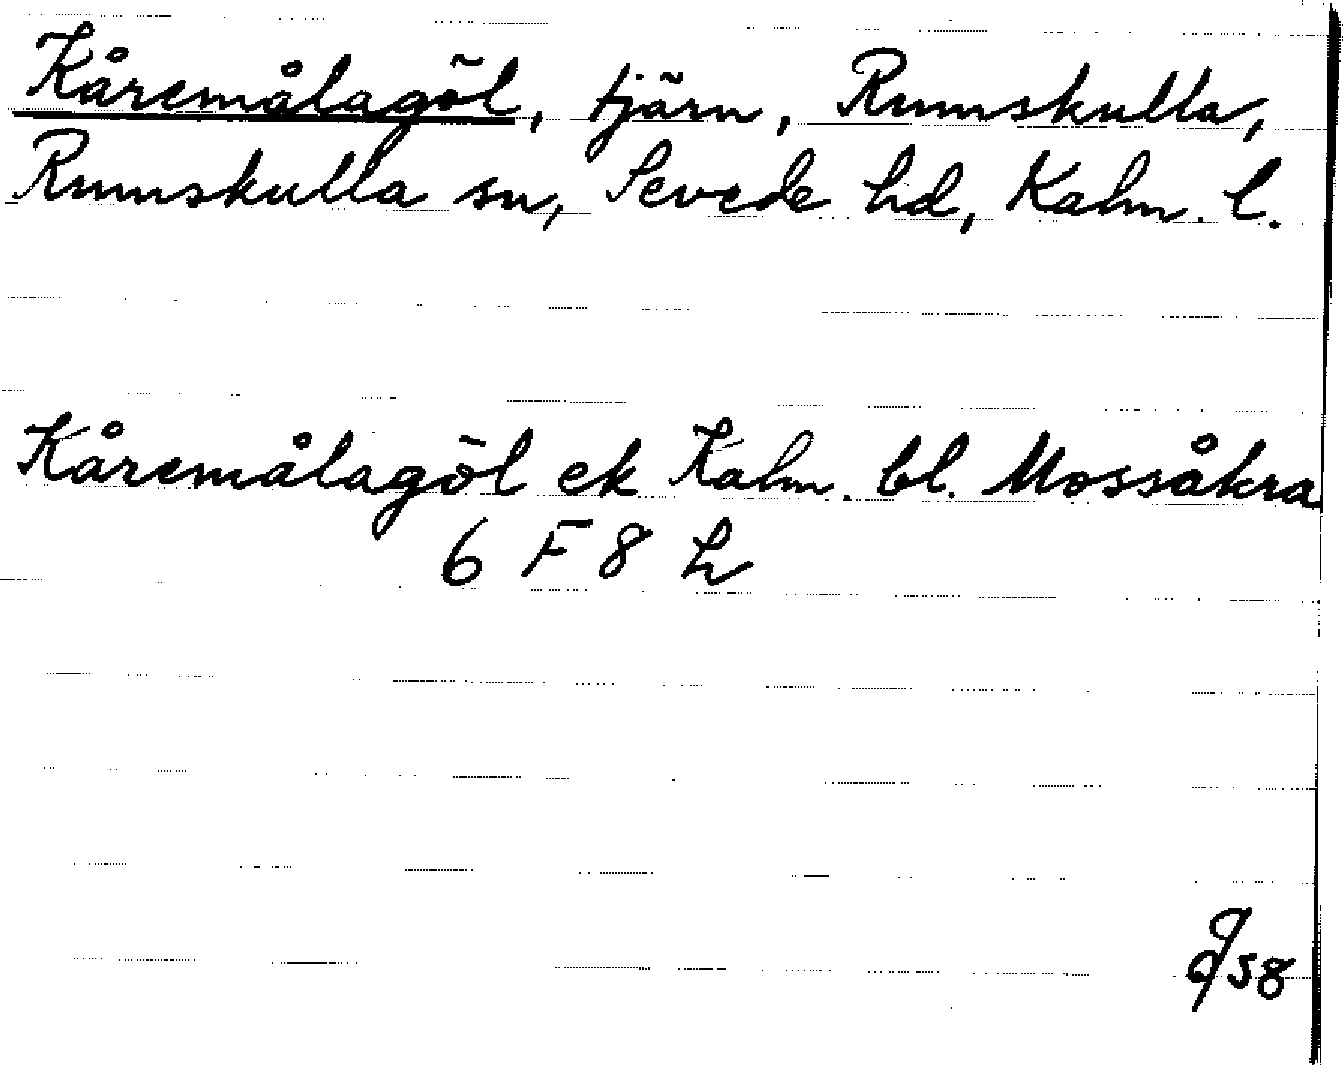 Kåremålagöl, tjärn, Rumskulla,
Rumskulla sn, Sevede hd, Kalm. l.
Kåremålagöl ek Kalm. bl. Mossåkra
6 F 8 h
58